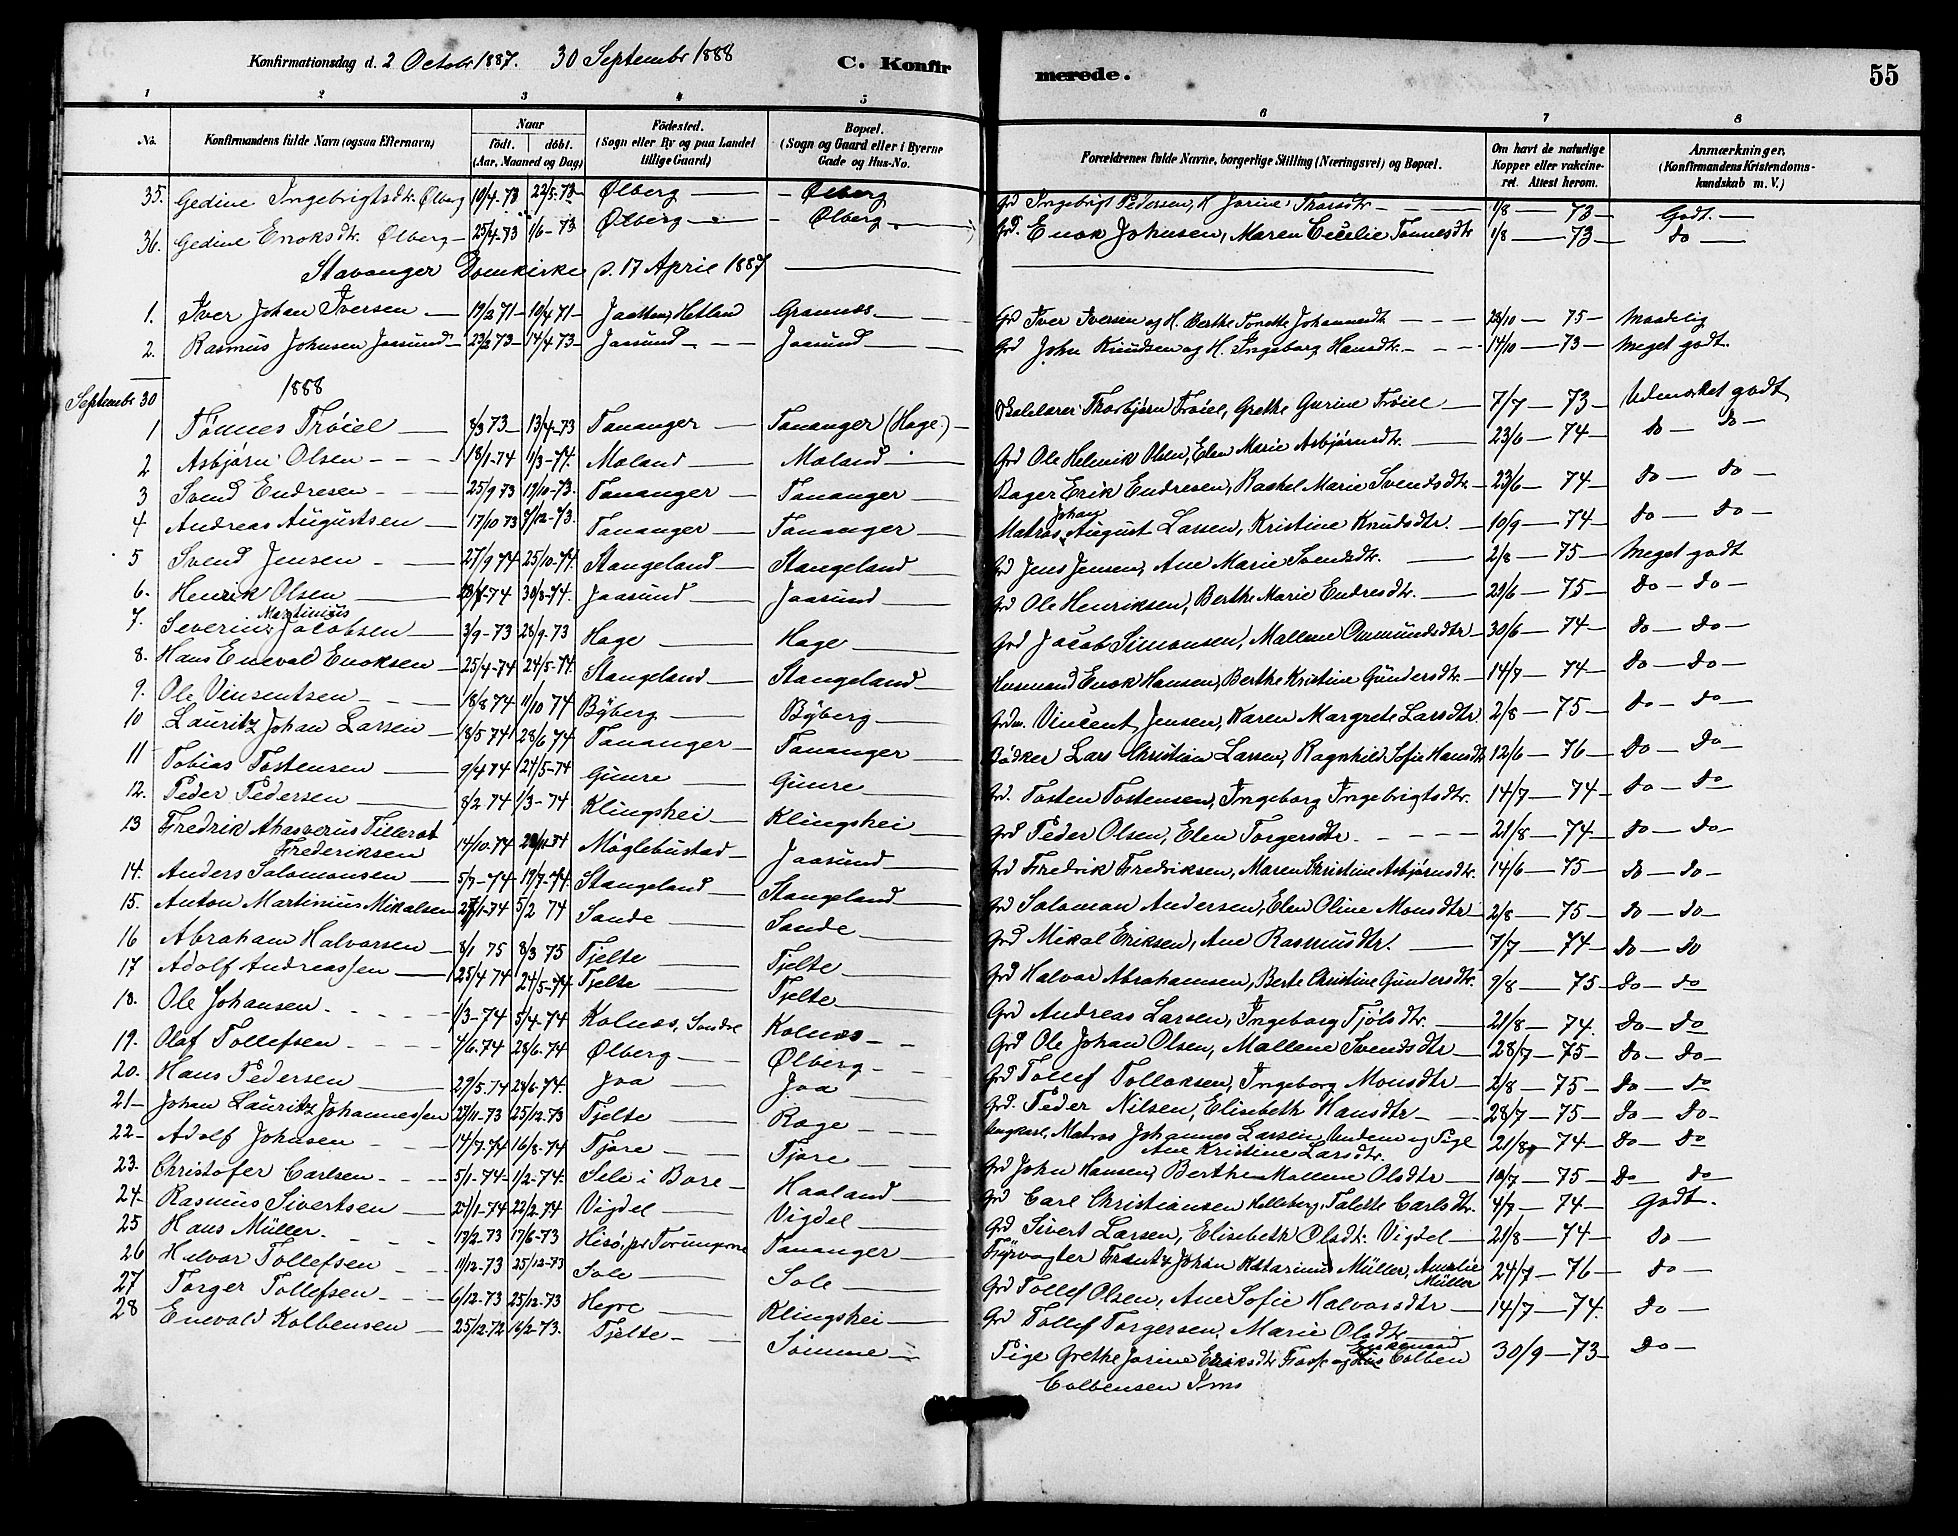 Konfirmationsdag d. 2 Octobr 1887. 30 Septembr 1888 C. Konfirmerede. 55
1 2 3 4 5 6 7 8
No. Konfirmandens fulde Navn (ogsaa Efternavn) Naar födt. döbt. (Aar, Maaned og Dag) Födested. (Sogn eller By og paa Landet tillige Gaard) Bopæl. (Sogn og Gaard eller i Byerne Gade og Hus-No. Forældrenes fulde Navne, borgerlige Stilling (Næringsvei) og Bopæl. Om havt de naturlige Kopper eller vakcineret. Attest herom. Anmærkninger, (Konfirmandens Kristendomskundskab m. V.)
35. Gedine Ingebrigtsdtr. Ølberg 19/4-73 22/5-73 Ølberg Ølberg Grd Ingebrigt Pedersen, K Jorine Thorsdtr 1/8 73 Godt.
36. Gedine Enoksdtr. Ølberg 25/4-73 1/6-73 Ølberg Ølberg Grd. Enok Johnsen, Maren Cecilie Tonnesdtr 1/8 73 do
Stavanger Domkirke d. 17 April 1887
1. Iver Johan Iversen 19/2 71 10/4 71 Jaatten, Hetland Grannes Grd Iver Iversen og H. Berthe Tonette Johannesdtr 28/10 75 Maadelig
2. Rasmus Johnsen Jaasund 23/2 73 14/4 73 Jaasund Jaasund Grd John Knudsen og H. Ingeborg Hansdtr. 14/10 73 Meget godt.
Septembr 30 1888
1 Tönnes Tröiel 8/3 73 13/4-73 Tananger Tananger (Hage) Thorbjörn Tröiel, Grethe Gurine Tröiel 7/7 73 Udmærket godt
2 Asbjörn Olsen 18/1-74 11/3-74. Meland Meland Grd Ole Helmik Olsen, Elen Marie Asbjörnsdtr. 23/6 74 do do
3 Svend Endresen 25/9 73 19/10-73. Tananger Tananger Bager Erik Endresen, Rachel Marie Svendsdtr. 23/6 74 do do
4 Andreas Augustsen 17/10 73 7/12-73. Tananger Tananger Matros Johan August Larsen, Kristine Knudsdtr. 10/9 74 do do
5 Svend Jensen 27/9 74 25/10-74. Stangeland Stangeland Grd Jens Jensen, Ane Marie Svendsdtr. 2/8 75 Meget godt
6. Henrik Olsen 74 30/8-74. Jaasund Jaasund Grd Ole Henriksen, Berthe Marie Endresdtr. 29/6 75 do do
7. Severin Martinius Jacobsen 3/9-73 28/9-73 Hage Hage Grd Jacob Simonsen, Mallene Omundsdtr 30/6 74 do do
8. Hans Enevald Enoksen 25/4-74 24/5-74. Stangeland Stangeland Husmand Enok Hansen, Berthe Kristine Gundersdtr. 14/7 74 do do
9. Ole Vinsentsen 18/8 74 11/10 74 Byberg Byberg Grdm. Vincent Jensen, Karen Margrete Larsdtr 2/8 75 do do
10 Lauritz Johan Larsen 18/5 74 28/6 74 Tananger Tananger Bödker Lars Christian Larsen, Ragnhild Sofie Hansdtr 12/6 76 do do
11 Tobias Tostensen 9/4 74 24/5-74 Gimre Gimre Grd. Tosten Tostensen, Ingeborg Ingebrigtsdtr. 14/7 74 do do
12. Peder Pedersen 8/2 74 1/3-74 Klingshei Klingshei Grd Peder Olsen, Elen Torgersdtr. 21/8 74 do do
13 Fredrik Ahasverus Tillerat Frederiksen 14/10-74 74 Möglebustad Jaasund Grd Fredrik Fredriksen, Maren Christine Asbjörnsdtr. 14/6 75 do do
14. Anders Salomonsen 5/7-74 19/7-74. Stangeland Stangeland Grd Salomon Andersen, Elen Oline Monsdtr 2/8 75 do do
15. Anton Martinius Mikalsen 27/1-74 5/2 74 Sande Sande Grd Mikal Eriksen, Ane Rasmusdtr. 7/7 74 do do
16 Abraham Halvorsen 8/1 75 8/3 75 Tjelte Tjelte Grd Halvor Abrahamsen, Berte Christine Gundersdtr. 9/8 75 do do
17 Adolf Andreassen 25/4 74 24/5-74 Tjelte Tjelte Grd Andreas Larsen, Ingeborg Tjölsdtr. 21/8 74. do do
18. Ole Johansen 1/3-74 5/4-74 Kolnes, Sondre Kolnes Grd Ole Johan Olsen, Mallene Svendsdtr 28/7 75 do do
19. Olaf Tollefsen 4/6-74 28/6-74 Ølberg Ølberg Grd Tollef Tollaksen, Ingeborg Monsdtr 2/8 75 do do
20. Hans Pedersen 29/5-74 28/6-74. Joa Joa Grd. Peder Nilsen, Elisebeth Hansdtr 28/7 75 do do
21 Johan Lauritz Johannessen 27/11-73 25/12-73 Tjelte Rage Ungkarl, Matros Johannes Larsen Undem og Pige Ane Kristine Larsdtr. 21/8 74 do do
22 Adolf Johnsen 14/7-74 16/8-74 Tjore Tjore Grd John Hansen, Berthe Mallene Olsdtr 10/7 75 do do
23. Christofer Carlsen 5/1-74 1/2-74. Sele i Bore Haaland Grd Carl Christiansen Helleberg, Talette Carlsdtr. 4/7 74 Godt.
24 Rasmus Sivertsen 24/1-74 22/2-74 Vigdel Vigdel Grd Sivert Larsen, Elisebeth Olsdtr. Vigdel 21/8 74 do
25 Hans Müller. 19/2-73 17/6-73 Hisö, pr Torungerne Tananger Fyrvogter Frantz Johan Katarinus Müller, Amalie Müller 24/7 76 do
26 Halvor Tollefsen 11/12-73 25/12-73 Sole Sole Grd Tollef Olsen, Ane Sofie Halvorsdtr 14/7 74. do
27 Torger Tollefsen 6/12-73 25/12-73 Hegre Klingshei Grd Tollef Torgersen, Marie Olsdtr
28 Enevald Kolbensen 25/12-72 16/2-73. Tjelte Somme Pige Grethe Jorine Eriksdtr Fosse og Enkemand Colben Colbensen Ims 30/9 73 do